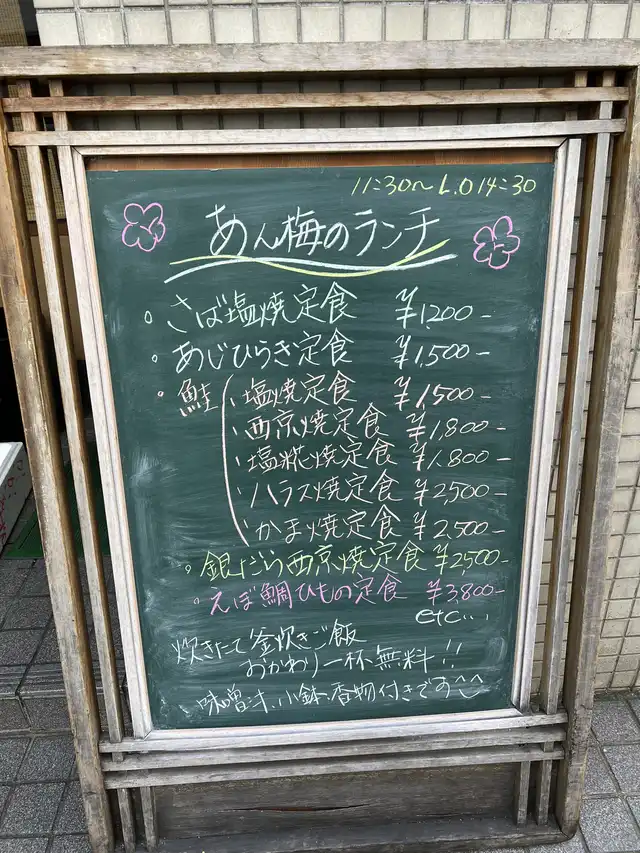 11:30~L.O 14:30
あん梅のランチ
・さば塩焼定食 ¥1,200-
・あじひらき定食 ¥1,500-
・鮭 ・塩焼定食 ¥1,500-
・西京焼定食 ¥1,800-
・塩糀焼定食 ¥1,800-
・ハラス焼定食 ¥2,500-
・かま焼定食 ¥2,500-
・銀だら西京焼定食 ¥2500-
・えぼ鯛ひもの定食 ¥3,800-
etc...
炊きたて釜炊きご飯
おかわり一杯無料!!
、味噌汁、小鉢、香物付きです^^